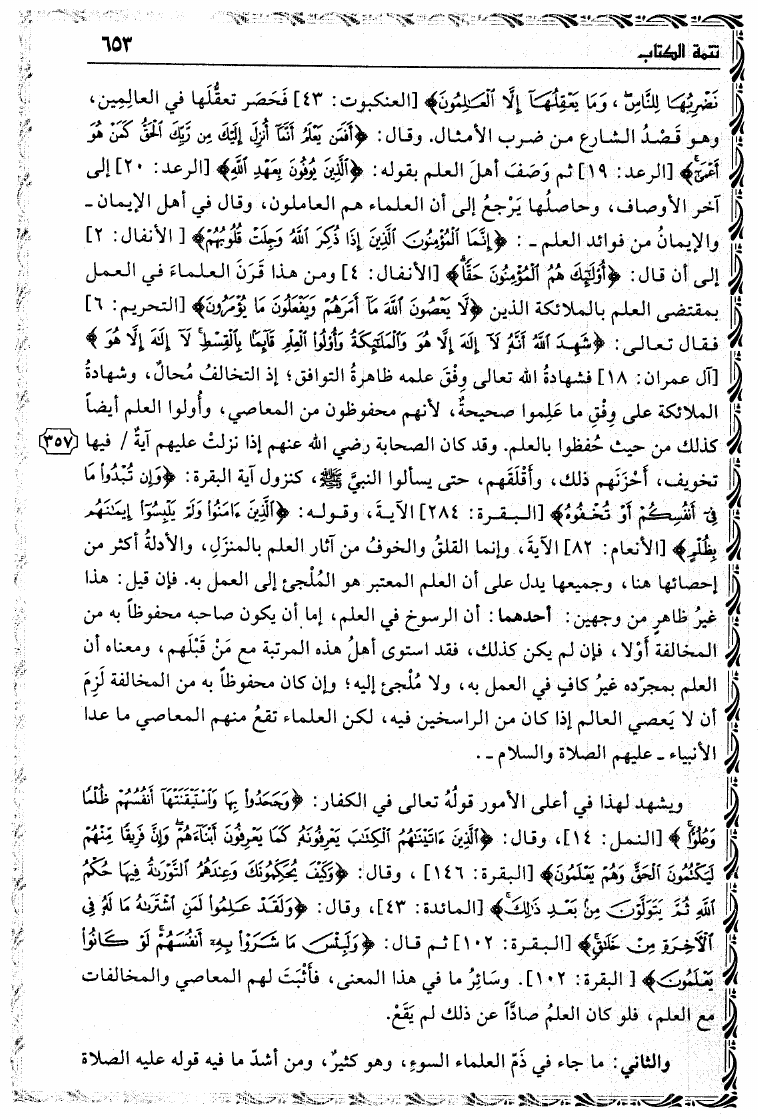 تتمة الكتاب
٦٥٣
نَضْرِبُهَا لِلنَّاسِ ۖ وَمَا يَعْقِلُهَا إِلَّا الْعَالِمُونَ﴾ [العنكبوت: ٤٣] فَحَصَر تعقُّلَها في العالِمِين،
وهو قَصْدُ الشارع من ضرب الأمثال. وقال: ﴿أَفَمَن يَعْلَمُ أَنَّمَا أُنزِلَ إِلَيْكَ مِن رَّبِّكَ الْحَقُّ كَمَنْ هُوَ
أَعْمَىٰ﴾ [الرعد: ١٩] ثم وَصَفَ أهلَ العلم بقوله: ﴿الَّذِينَ يُوفُونَ بِعَهْدِ اللَّهِ﴾ [الرعد: ٢٠] إلى
آخر الأوصاف، وحاصلُها يَرْجعُ إلى أن العلماء هم العاملون، وقال في أهل الإيمان ـ
والإيمانُ من فوائد العلم ـ : ﴿إِنَّمَا الْمُؤْمِنُونَ الَّذِينَ إِذَا ذُكِرَ اللَّهُ وَجِلَتْ قُلُوبُهُمْ﴾ [الأنفال: ٢]
إلى أن قال: ﴿أُولَٰئِكَ هُمُ الْمُؤْمِنُونَ حَقًّا﴾ [الأنفال: ٤] ومن هذا قَرَنَ العلماءَ في العمل
بمقتضى العلم بالملائكة الذين ﴿لَّا يَعْصُونَ اللَّهَ مَا أَمَرَهُمْ وَيَفْعَلُونَ مَا يُؤْمَرُونَ﴾ [التحريم: ٦]
فقال تعالى: ﴿شَهِدَ اللَّهُ أَنَّهُ لَا إِلَٰهَ إِلَّا هُوَ وَالْمَلَائِكَةُ وَأُولُوا الْعِلْمِ قَائِمًا بِالْقِسْطِ ۚ لَا إِلَٰهَ إِلَّا هُوَ ﴾
[آل عمران: ١٨] فشهادةُ الله تعالى وِفْقَ علمه ظاهرةُ التوافق؛ إذ التخالفُ مُحالٌ، وشهادةُ
الملائكة على وِفْقِ ما عَلِموا صحيحةٌ، لأنهم محفوظون من المعاصي، وأُولوا العلم أيضاً
كذلك من حيث حُفظوا بالعلم. وقد كان الصحابة رضي الله عنهم إذا نزلتْ عليهم آيةٌ / فيها
٣٥٧
تخويف، أَحْزَنَهم ذلك، وأَقْلَقَهم، حتى يسألوا النبيَّ ﷺ، كنزول آية البقرة: ﴿وَإِن تُبْدُوا مَا
فِي أَنفُسِكُمْ أَوْ تُخْفُوهُ﴾ [البقرة: ٢٨٤] الآيةَ، وقوله: ﴿الَّذِينَ آمَنُوا وَلَمْ يَلْبِسُوا إِيمَانَهُم
بِظُلْمٍ﴾ [الأنعام: ٨٢] الآيةَ، وإنما القلقُ والخوفُ من آثار العلم بالمنزَلِ، والأدلةُ أكثر من
إحصائها هنا، وجميعها يدل على أن العلم المعتبر هو المُلْجئ إلى العمل به. فإن قيل: هذا
غيرُ ظاهرٍ من وجهين: أحدهما: أن الرسوخ في العلم، إما أن يكون صاحبه محفوظاً به من
المخالفة أَوْلا، فإن لم يكن كذلك، فقد استوى أهلُ هذه المرتبة مع مَنْ قَبْلَهم، ومعناه أن
العلم بمجرّده غيرُ كافٍ في العمل به، ولا مُلْجئ إليه؛ وإن كان محفوظاً به من المخالفة لَزِمَ
أن لا يَعصي العالم إذا كان من الراسخين فيه، لكن العلماء تقعُ منهم المعاصي ما عدا
الأنبياء ـ عليهم الصلاة والسلام ـ.
ويشهد لهذا في أعلى الأمور قولُهُ تعالى في الكفار: ﴿وَجَحَدُوا بِهَا وَاسْتَيْقَنَتْهَا أَنفُسُهُمْ ظُلْمًا
وَعُلُوًّا ۚ ﴾ [النمل: ١٤]، وقال: ﴿الَّذِينَ آتَيْنَاهُمُ الْكِتَابَ يَعْرِفُونَهُ كَمَا يَعْرِفُونَ أَبْنَاءَهُمْ ۖ وَإِنَّ فَرِيقًا مِّنْهُمْ
لَيَكْتُمُونَ الْحَقَّ وَهُمْ يَعْلَمُونَ﴾ [البقرة: ١٤٦] ، وقال: ﴿وَكَيْفَ يُحَكِّمُونَكَ وَعِندَهُمُ التَّوْرَاةُ فِيهَا حُكْمُ
اللَّهِ ثُمَّ يَتَوَلَّوْنَ مِن بَعْدِ ذَٰلِكَ ۚ﴾ [المائدة: ٤٣]، وقال: ﴿وَلَقَدْ عَلِمُوا لَمَنِ اشْتَرَاهُ مَا لَهُ فِي
الْآخِرَةِ مِنْ خَلَاقٍ ۚ﴾ [البقرة: ١٠٢] ثم قال: ﴿وَلَبِئْسَ مَا شَرَوْا بِهِ أَنفُسَهُمْ ۚ لَوْ كَانُوا
يَعْلَمُونَ﴾ [ البقرة: ١٠٢]. وسَائِرُ ما في هذا المعنى، فأَثْبَتَ لهم المعاصي والمخالفات
مع العلم، فلو كان العلمُ صادَّاً عن ذلك لم يَقَعْ.
والثاني: ما جاء في ذَمّ العلماء السوءِ، وهو كثيرٌ، ومن أشدّ ما فيه قوله عليه الصلاة